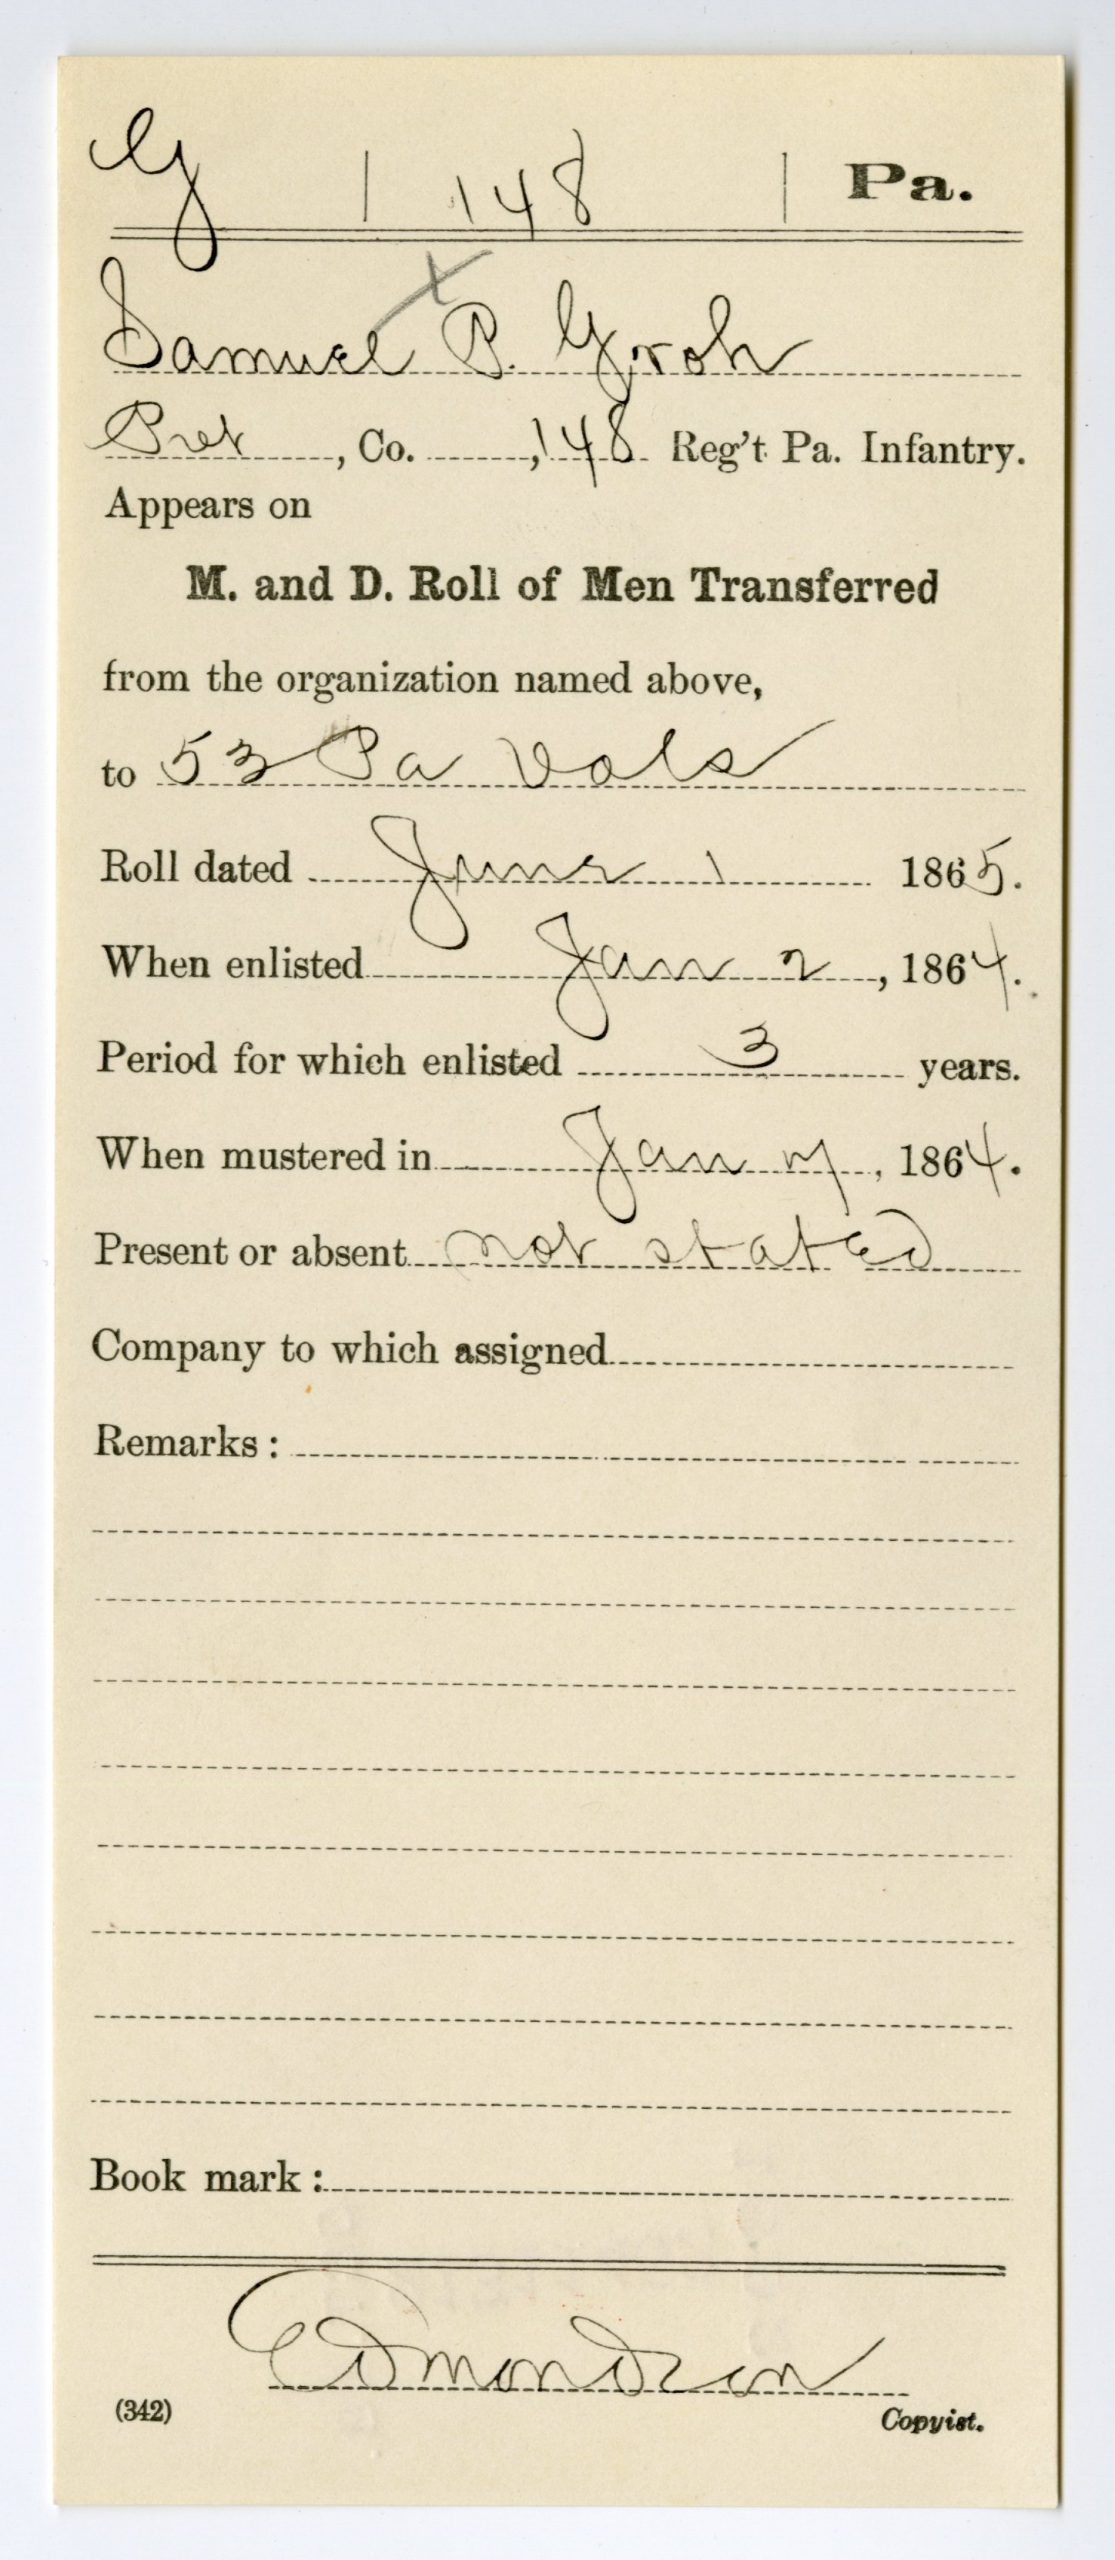 G | 148 | Pa.
x
Samuel P. Groh
Pvt, Co. , 148 Reg't Pa. Infantry.
Appears on
M. and D. Roll of Men Transferred
from the organization named above,
to 53 Pa Vols
Roll dated June 1 1865.
When enlisted Jan 2, 1864.
Period for which enlisted 3 years.
When mustered in Jan 7, 1864.
Present or absent not stated
Company to which assigned
Remarks:
Book mark:
Edmondson
(342) Copyist.